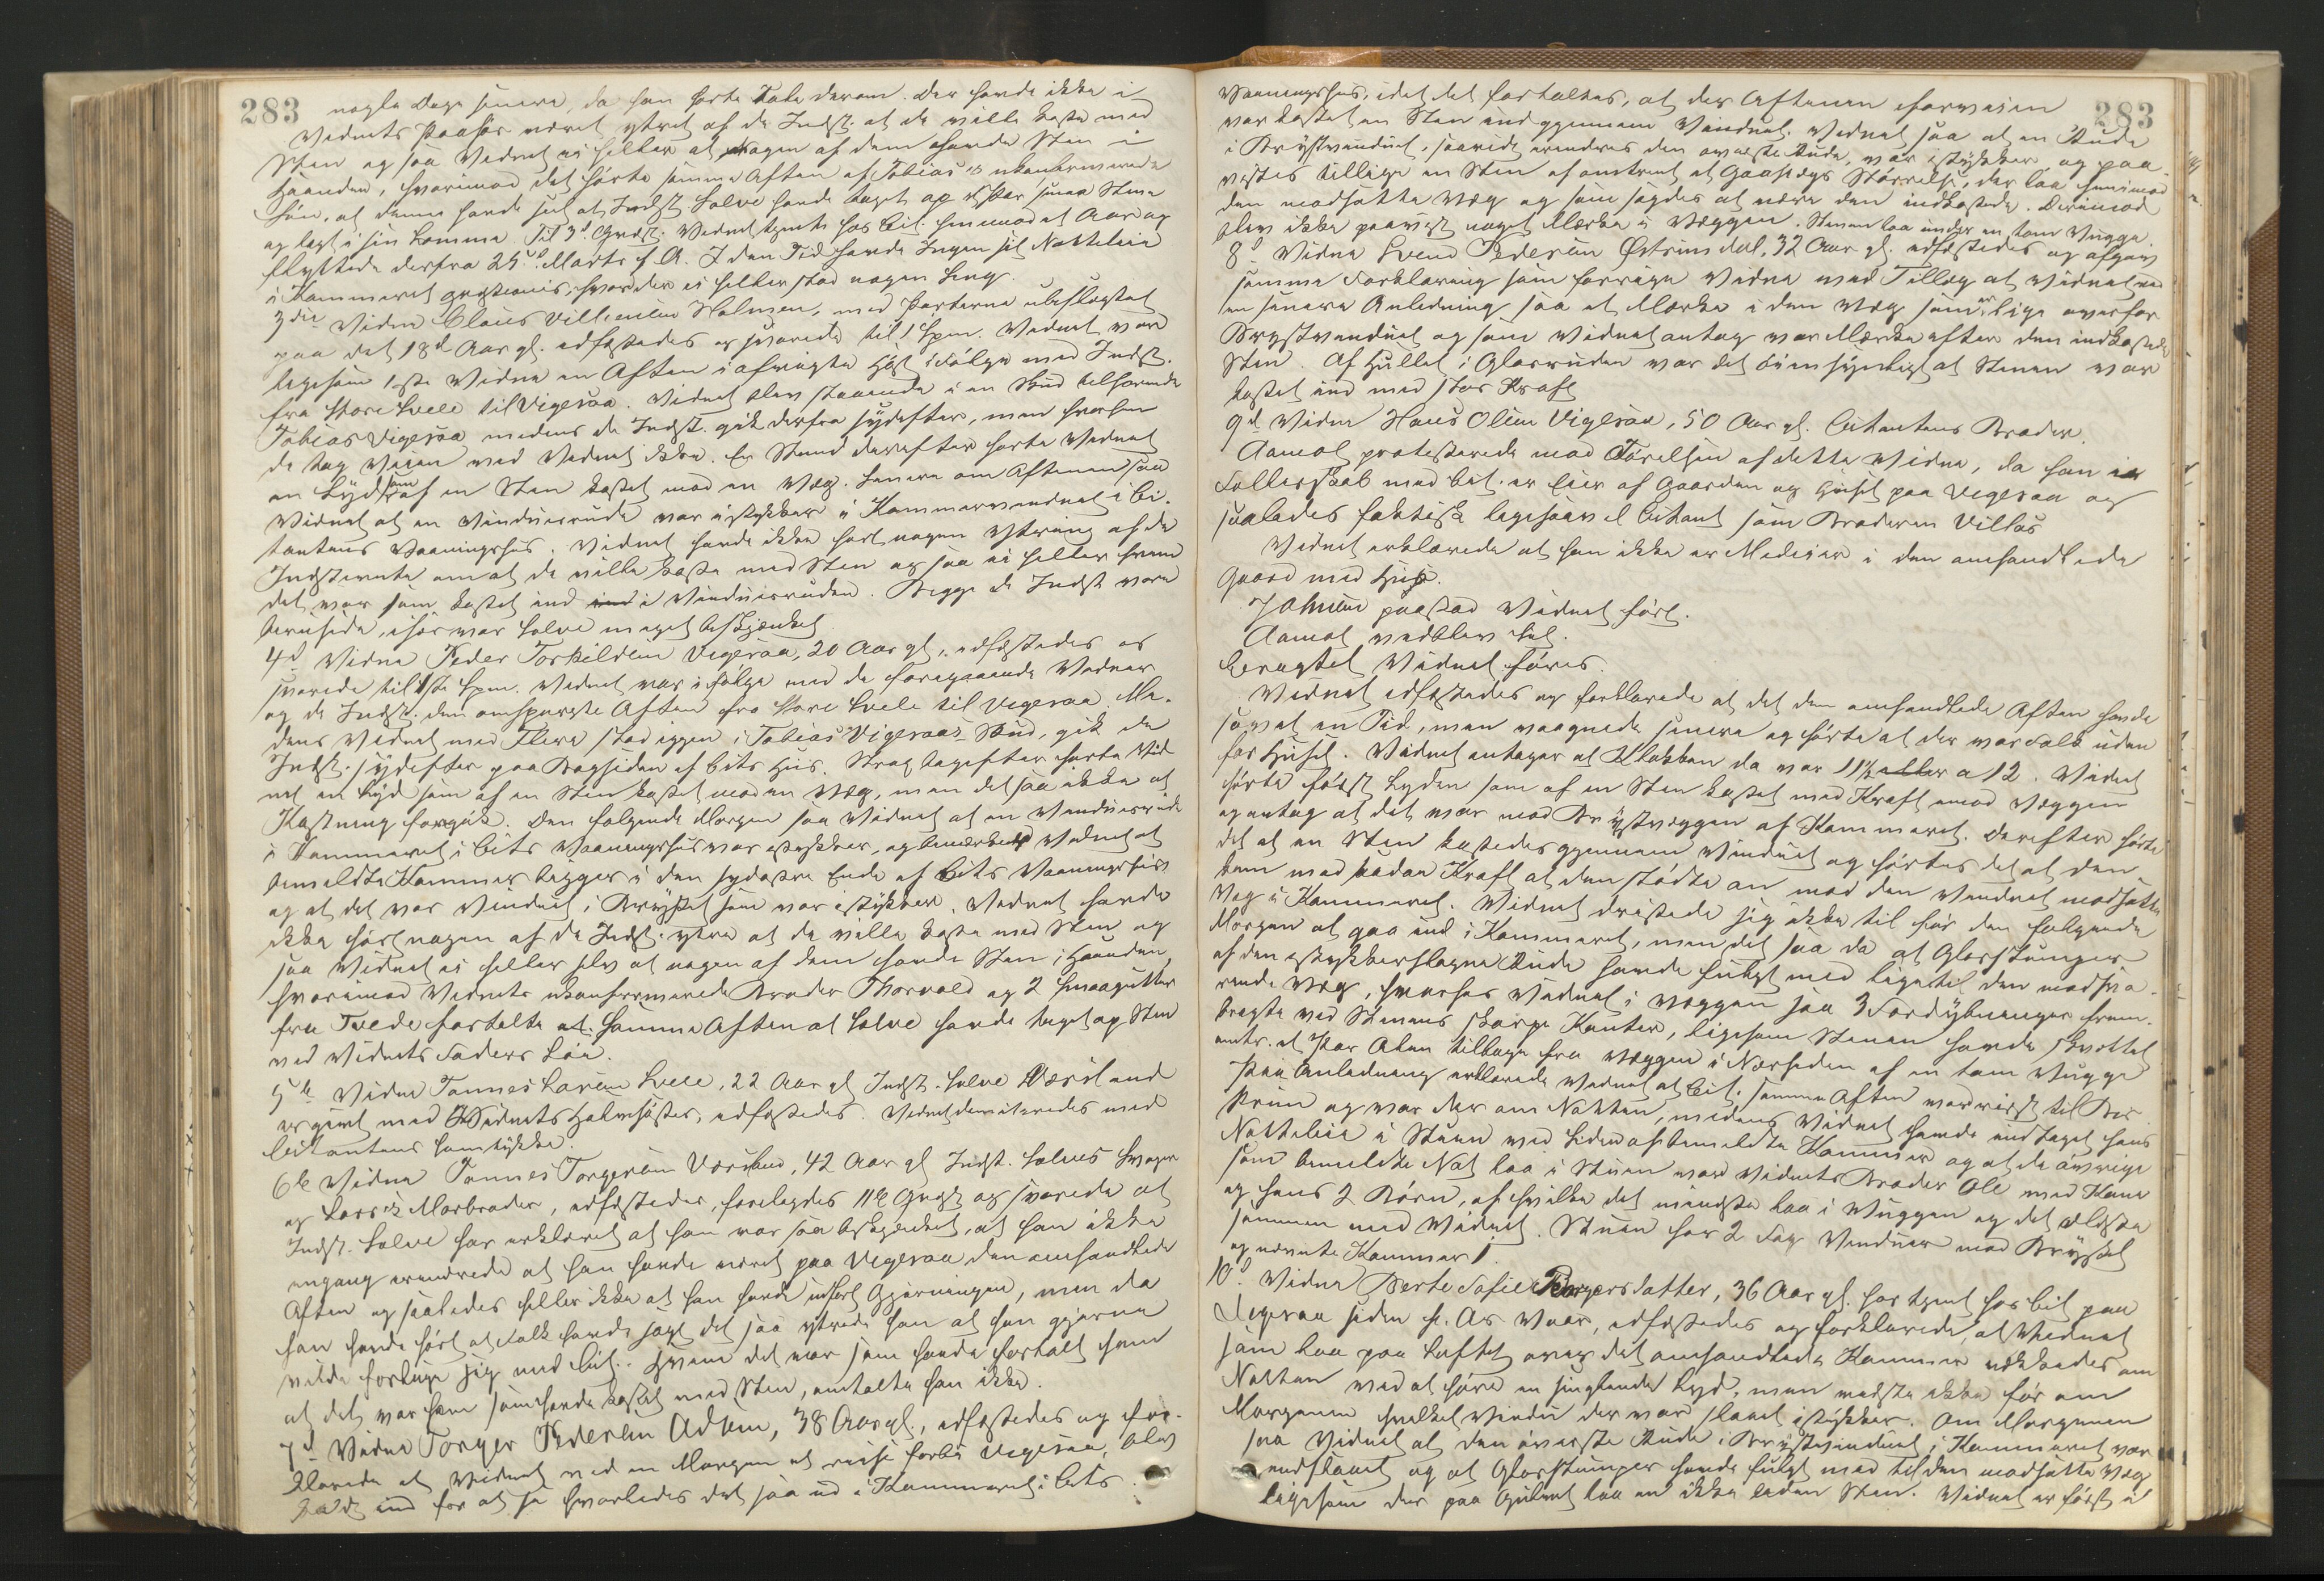 283
nogle Dage senere, da han hørte Tale derom. Der havde ikke i
Vidnets Paahør været ytret af de Indst. at de vilde kaste med
Sten og saa Vidnet ei heller at nogen af dem havde Sten i
Haanden, hvorimod det hørte samme Aften af Tobias's ukonfirmerede
Søn, at denne havde set at Indst. Salve havde taget op et Par smaa Stene
og lagt i sin Lomme. Til 3d Grdst. Vidnet tjente hos Cit. henimod et Aar og
flyttede derfra 25d Marts f. A. I den Tid havde Ingen sit Natteleie
i Kammeret quæstionis, hvor der ei heller stod nogen Seng.
3die Vidne Claus Villumsen Holmen, med Parterne ubeslægtet
paa det 18d Aar gl. edfæstedes og svarede til 1 Spm. Vidnet var
ligesom 1ste Vidne en Aften i afvigte Høst i Følge med Indst.
fra Store Svele til Vigesaa. Vidnet blev staaende i en Skud tilhørende
Tobias Vigesaa medens de Indst. gik derfra sydefter, men hvorhen
de tog Veien ved Vidnet ikke. En Stund derefter hørte Vidnet
en Lyd som af en Sten kastet mod en Væg. Senere om Aftenen saa
Vidnet at en Vinduesrude var istykker i Kammervinduet i Ci-
tantens Vaaningshus. Vidnet havde ikke hørt nogen Ytring af de
Indstevnte om at de vilde kaste med Sten og saa ei heller hvem
det var som kastet ind i Vinduesruden. Begge de Indst. vare
berusede, især var Salve meget beskjænket.
4d Vidne Peder Torkildsen Vigesaa, 20 Aar gl., edfæstedes og
svarede til 1ste Spm. Vidnet var i Følge med de foregaaende Vidner
og de Indst. den omspurgte Aften fra Store Svele til Vigesaa. Me-
dens Vidnet med Flere stod igjen i Tobias Vigesaas Skud, gik de
Indst. sydefter paa Bagsiden af Cits Hus. Strax derefter hørte Vid
net en Lyd som af en Sten kastet mod en Væg, men det saa ikke at
Kastning foregik. Den følgende Morgen saa Vidnet at en Vinduesrude
i Kammeret i Cits Vaaningshus var istykker, og bemærkede Vidnet at
bemeldte Kammer ligger i den sydøstre Ende af Cits Vaaningshus
og at det var Vinduet i Brystet som var istykker. Vidnet havde
ikke hørt nogen af de Indst. ytre at de vilde kaste med Sten og
saa Vidnet ei heller selv at nogen af dem havde Sten i Haanden,
hvorimod Vidnets ukonfirmerede Broder Thorvald og 2 Smaagutter
fra Tvede fortalte at samme Aften at Salve havde taget op Sten
ved Vidnets Faders Lade.
5te Vidne Tønnes Larsen Svele, 22 Aar gl. Indst. SalveVærsland
er givt med Vidnets Halvsøster, edfæstedes. Vidnet demitteredes med
Citantens Samtykke.
6te Vidne Tønnes Torgersen Værsland, 42 Aar gl. Indst. Salves Svoger
og Lars's Morbroder, edfæstedes, forelagdes 11te Grgst og svarede at
Indst. Salve har erklæret at han var saa beskjænket, at han ikke
engang erindrede at han havde været paa Vigesaa den omhandlede
Aften og saaledes heller ikke at han havde udført Gjerningen, men da
han havde hørt at Folk havde sagt det saa ytrede han at han gjerne
vilde forlige sig med Cit. Hvem det var som havde fortalt ham
at det var ham som havde kastet med Sten, omtalte han ikke.
7d Vidne Torger Pedersen Adsen, 38 Aar gl., edfæstedes og for-
klarede at Vidnet ved en Morgen at reise forbi Vigesaa, blev
kaldt ind for at se hvorledes det saa ud i Kammeret i Cits
283
Vaaningshus, idet det fortaltes, at der Aftenen forveien
var kastet en Sten ind gjennem Vinduet. Vidnet saa at en Rude
i Brystvinduet, saavidt erindres den øverste Rude, var istykker, og paa-
vistes tillige en Sten af omtrent et Gaaseægs Størrelse, der laa henimod
den modsatte Væg og som sagdes at være den indkastede. Derimod
blev ikke paavist noget Mærke i Væggen. Stenen laa under en tom Vugge.
8d Vidne Svend Pedersen Ørtsmdal, 32 Aar gl. edfæstedes og afgav
samme Forklaring som forrige Vidne med Tillæg at Vidnet ved
en senere Anledning saa et Mærke i den Væg som er lige overfor
Brystvinduet og som Vidnet antog var Mærke efter den indkastede
Sten. Af Hullet i Glasruden var det øiensynligt at Stenen var
kastet ind med stor Kraft
9d Vidne Hans Olsen Vigesaa, 50 Aar gl. Citantens Broder.
Aamot protesterede mod Førelsen af dette Vidne, da han i
Fællesskab med Cit. er Eier af Gaarden og Huset paa Vigesaa og
saaledes faktisk ligesaavel Citant som Broderen Villas
Vidnet erklærede at han ikke er Medeier i den omhandlede
Gaard med Hus.
Johnsen paastod Vidnet ført.
Aamot vedblev sit.
Eragtet Vidnet føres.
Vidnet edfæstedes og forklarede at det den omhandlede Aften havde
sovet en Tid, men vaagnede senere og hørte at der var Folk uden
for Huset. Vidnet antager at Klokken da var 11½ a 12. Vidnet
hørte først Lyden som af en Sten kastet med Kraft imod Væggen
og antog at det var mod Brystvæggen af Kammeret. Derefter hørte
det at en Sten kastedes gjennem Vinduet og hørtes det at den
kom med saadan Kraft at den stødte an mod den Vinduet modsatte
Væg i Kammeret. Vidnet dristede sig ikke til før den følgende
Morgen at gaa ind i Kammeret, men det saa da at Glasstumper
af den istykkerslagne Rude havde fulgt med lige til den modsva-
rende Væg, hvorhos Vidnet i Væggen saa 3 Fordybninger frem-
bragte ved Stenens skarpe Kanter, ligesom Stenen havde sprettet
omtr. et Par Alen tilbage fra Væggen i Nærheden af en tom Vugge
Paa Anledning erklærede Vidnet at Cit. samme Aften var reist til
og var der om Natten, medens Vidnet havde indtaget hans
Natteleie i Stuen ved Siden af bemeldte Kammer og at de øvrige
som bemeldte Nat laa i Stuen var Vidnets Broder Ole med Kone
og hans 2 Børn, af hvilke det mindste laa i Vuggen og det ældste
sammen med Vidnet. Stuen har 2 Fag Vinduer mod Brystet
og nævnte Kammer 1.
10d Vidne Berte Sofie Torgersdatter, 36 Aar gl. har tjent hos Cit paa
Vigesaa siden f. Ars Vaar, edfæstedes og forklarede, at Vidnet
som laa paa Loftet over det omhandlede Kammer vækkedes om
Natten ved at høre en singlende Lyd, men vidste ikke før om
Morgenen hvilket Vindu der var slaaet istykker. Om Morgenen
saa Vidnet at den øverste Rude i Brystvinduet i Kammeret var
indslaaet og at Glasstumper havde fulgt med til den modsatte Væg
ligesom der paa Gulvet laa en ikke liden Sten. Vidnet er født i